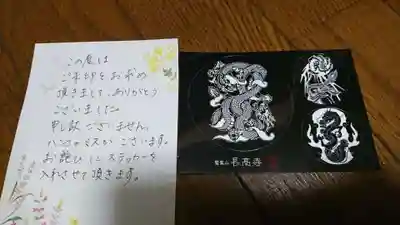 この度は
ご朱印をお求め
頂きまして、ありがとう
ございました。
申し訳ございません、
ハンコのミスがございます。
お詫びにステッカーを
入れさせて頂きます。
長高寺